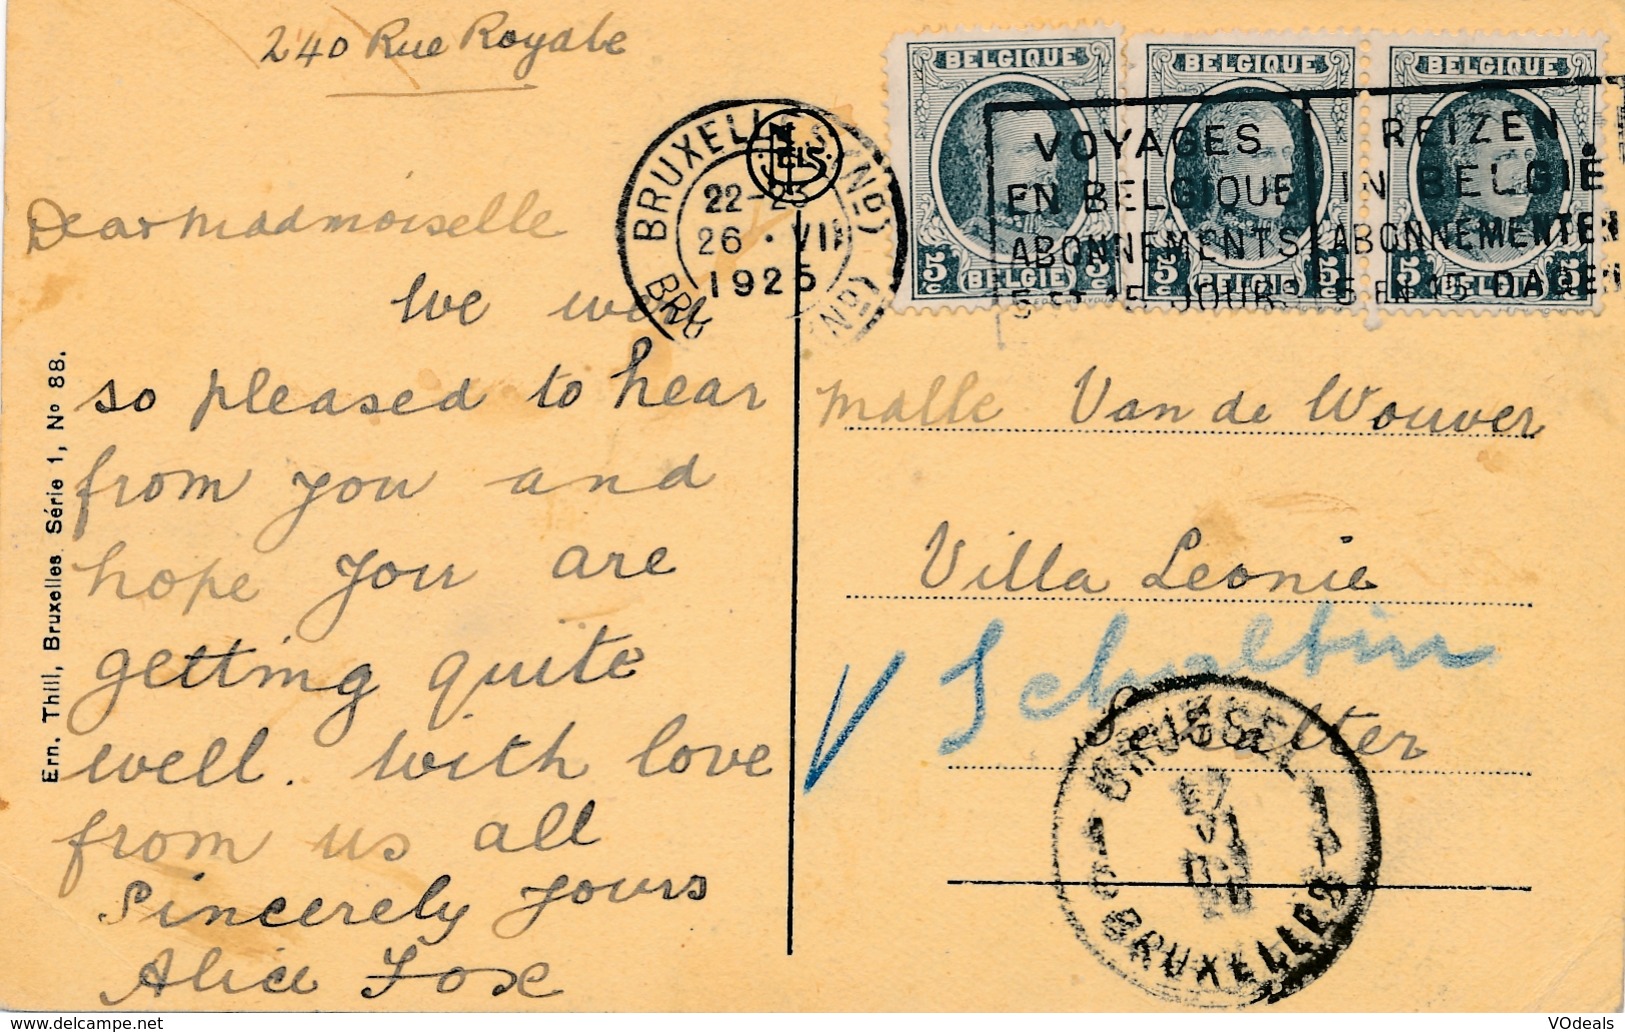 240 Rue Royale
BELGIQUE
BELGIQUE
BELGIQUE
5c BELGIË 5c
5c BELGIË 5c
5c BELGIË 5c
VOYAGES
EN BELGIQUE
ABONNEMENTS
5 ET 15 JOURS
REIZEN
IN BELGIË
ABONNEMENTEN
5 EN 15 DAGEN
NELS
22-23
26 · VII
1925
Dear Madmoiselle
We were
so pleased to hear
from you and
hope you are
getting quite
well. With love
from us all
Sincerely Yours
Alice Fox
Ern. Thill, Bruxelles. Série 1, No 88.
Malle Van de Wouver
Villa Leonie
V Schaltin
BRUSSEL
BRUXELLES
VDeals